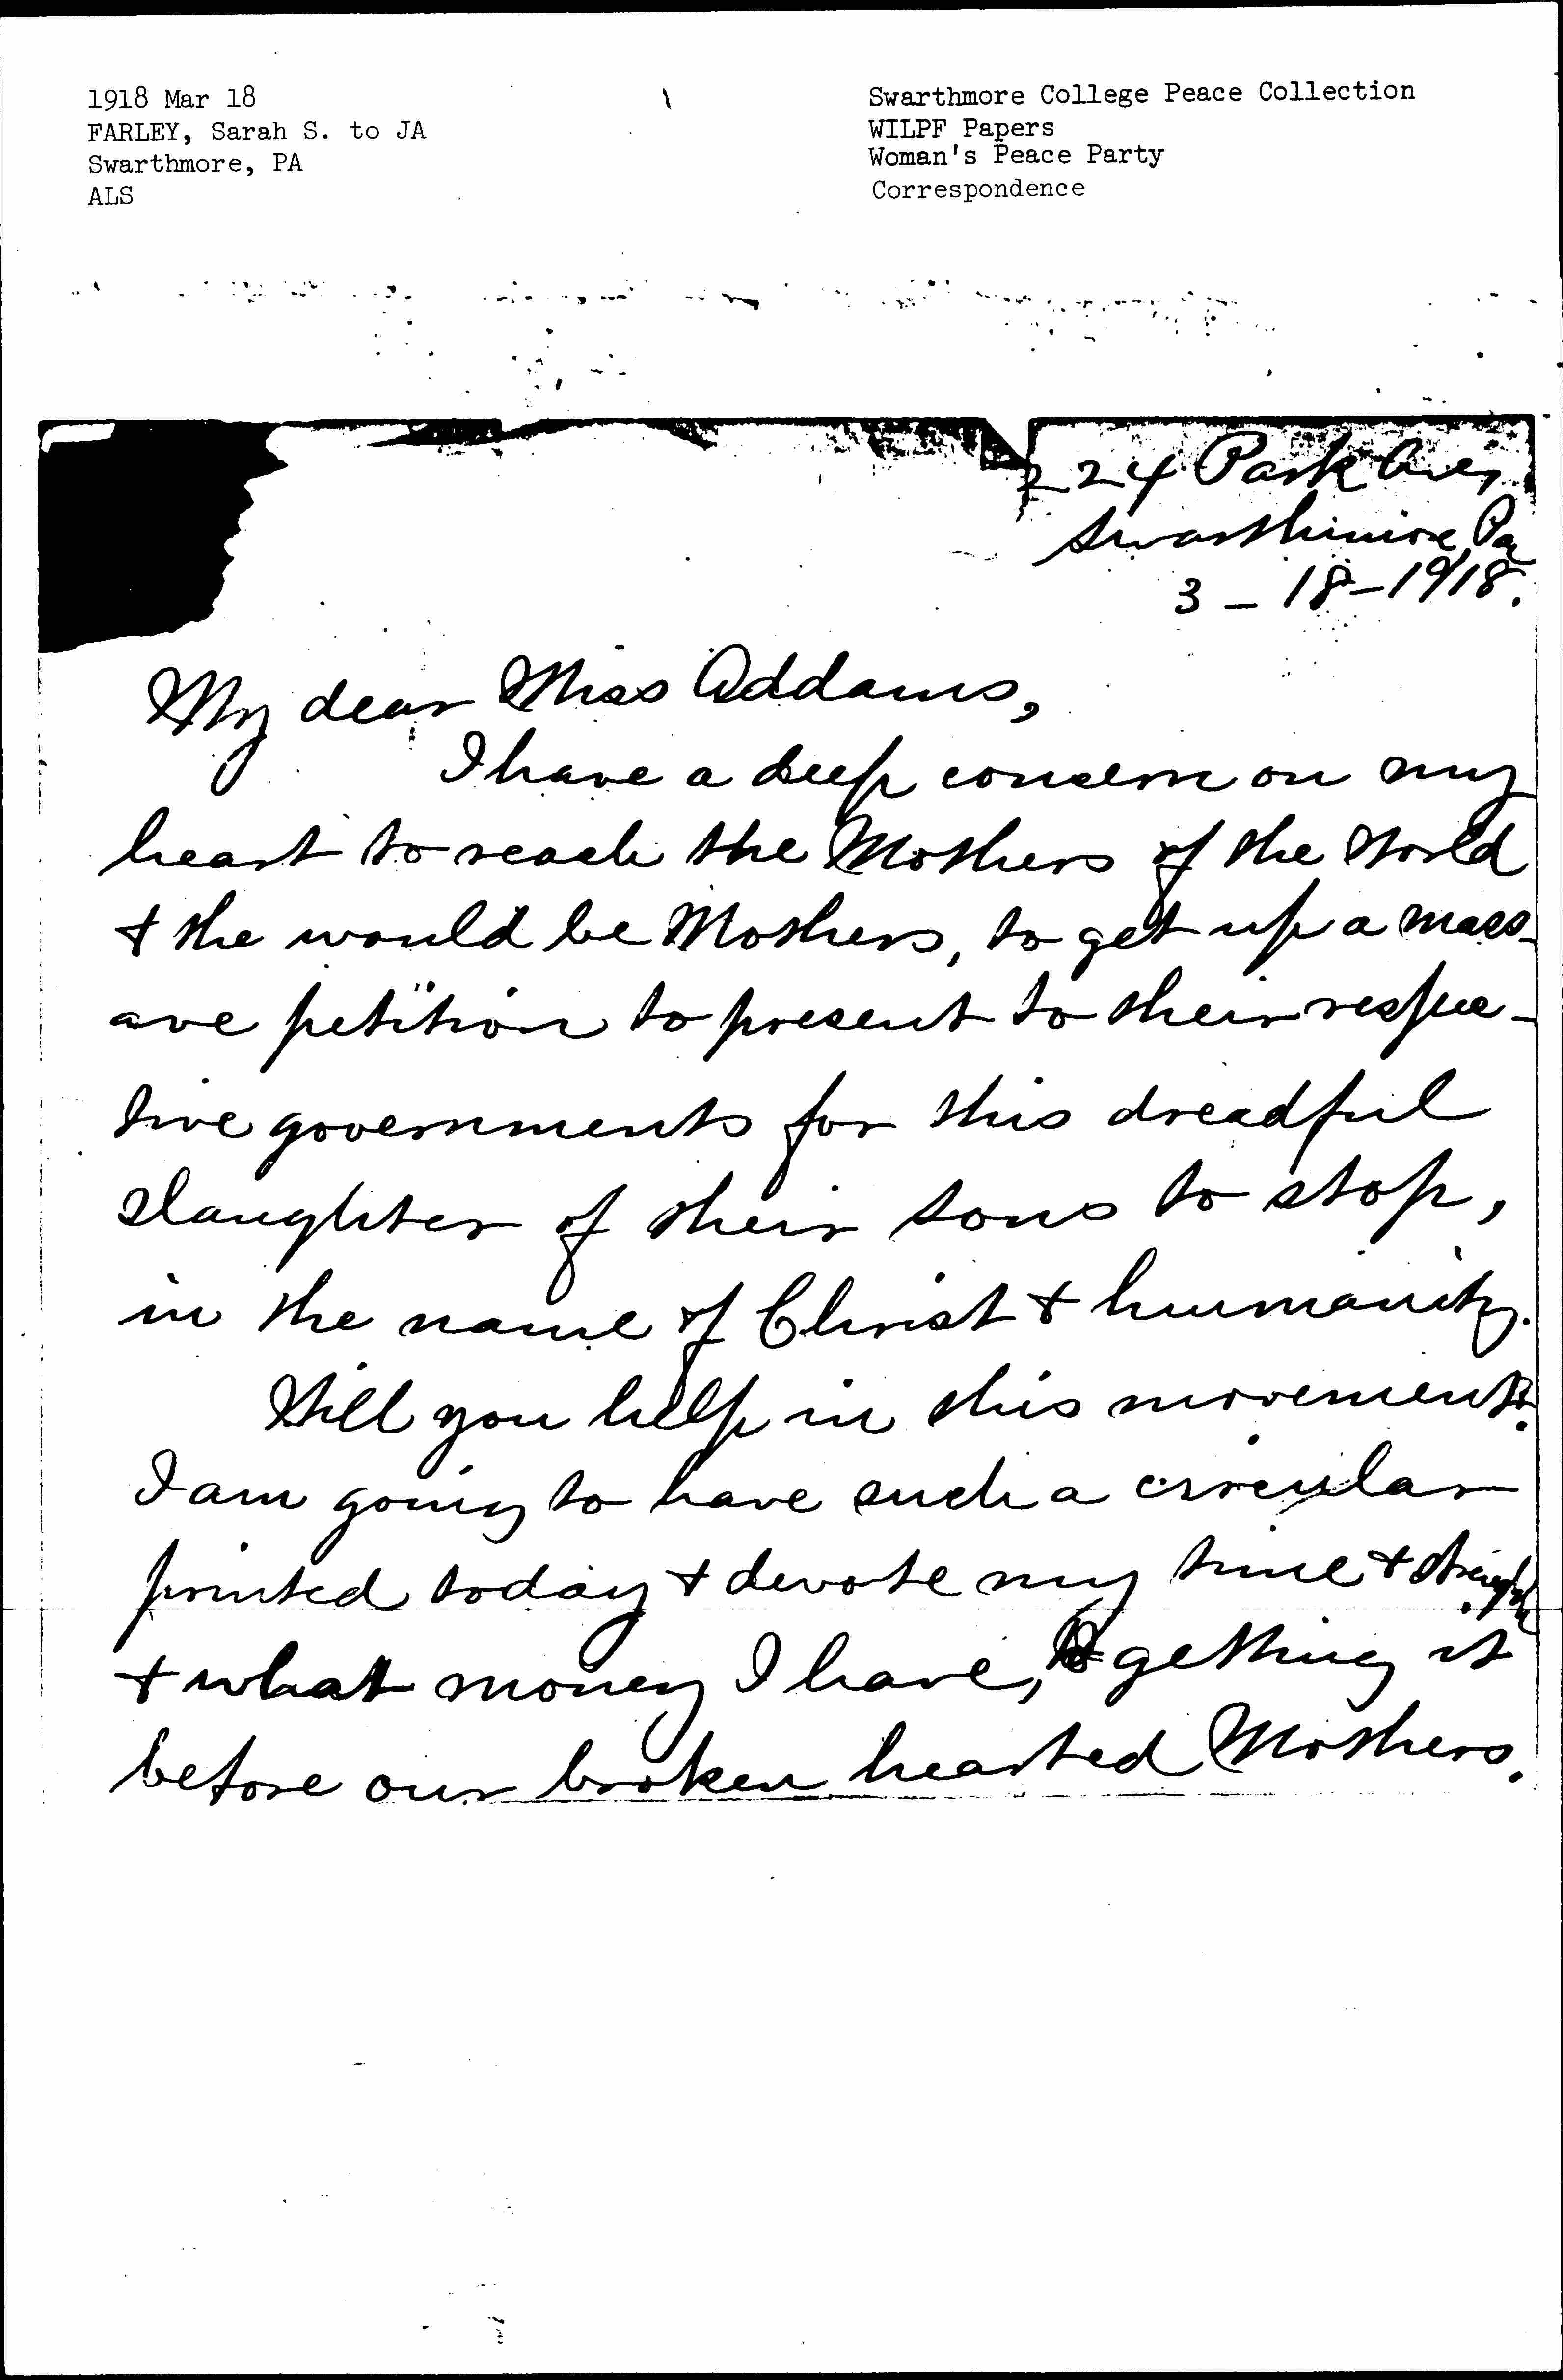 1918 Mar 18
FARLEY, Sarah S. to JA
Swarthmore, PA
ALS
Swarthmore College Peace Collection
WILPF Papers
Woman's Peace Party
Correspondence
224 Park Ave,
Swarthmore, Pa
3 - 18 - 1918.
My dear Miss Addams,
I have a deep concern on my
heart to reach the Mothers of the World
+ the would be Mothers, to get up a mass-
ave petition to present to their respec-
tive governments for this dreadful
slaughter of their sons to stop,
in the name of Christ + humanity.
Will you help in this movement?
I am going to have such a circular
printed today + devote my time + strength
+ what money I have, to getting it
before our broken hearted Mothers.